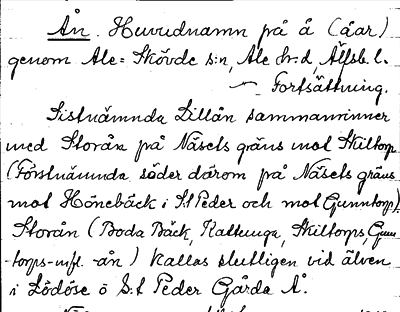 Ån. Huvudnamn på å (åar)
genom Ale-Skövde s:n, Ale hr:d, Älfsb. l.
Fortsättning.
Sistnämnda Lillån sammanrinner
med Storån på Näsets gräns mot Skiltorp
(Förstnämnda söder därom på Näsets gräns
mot Hönebäck i S:t Peder och mot Gunntorp).
Storån (Boda Bäck, Kattunga, Skiltorps, Gunn
-torps- mfl. -ån) kallas slutligen vid älven
i Lödöse ö S:t Peder Gårda Å.